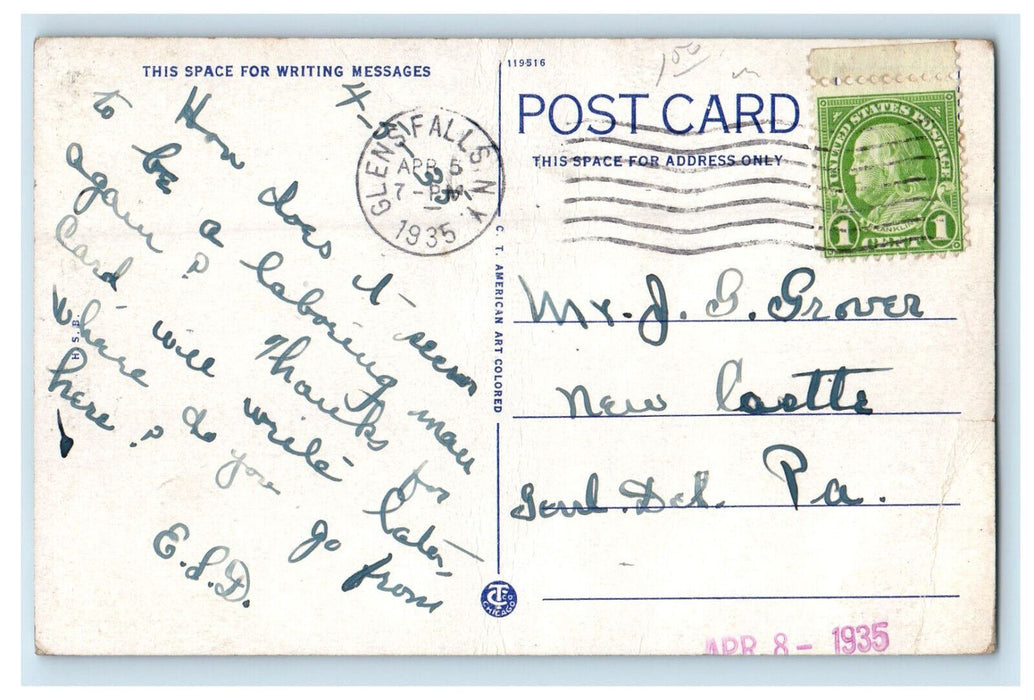 THIS SPACE FOR WRITING MESSAGES
4-5-35
How does it seem
to be a laboring man
again? Thanks for
Card will write later,
where do you go from
here?
E.S.D.
H.S.B.
GLENS FALLS. N.Y.
APR 5
7-PM
1935
C. T. AMERICAN ART COLORED
CTCO
CHICAGO
119516
150
POST CARD
THIS SPACE FOR ADDRESS ONLY
UNITED STATES POSTAGE
FRANKLIN
1 1
Mr. J. G. Grover
New Castle
Genl. Del. Pa.
APR 8 - 1935